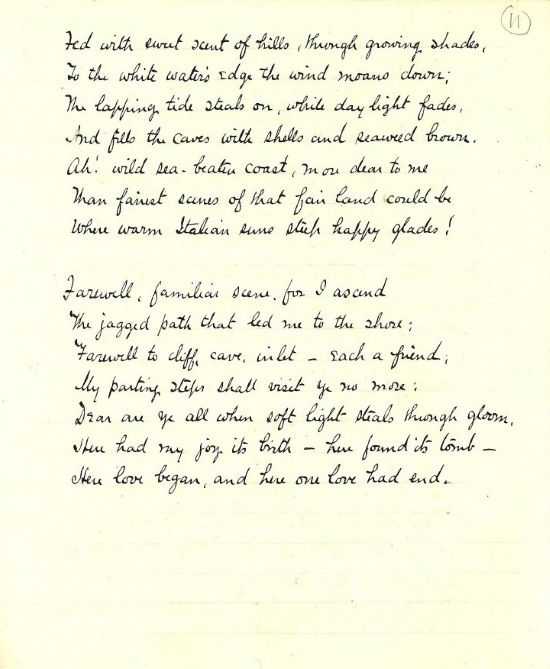 11
Fed with sweet scent of hills, through growing shades,
To the white water's edge the wind moans down;
The lapping tide steals on, while daylight fades,
And fills the caves with shells and seaweed brown.
Ah! wild sea-beaten coast, more dear to me
Than fairest scenes of that fair land could be
Where warm Italian suns steep happy glades!
Farewell, familiar scene, for I ascend
The jagged path that led me to the shore;
Farewell to cliff, cave, inlet – each a friend;
My parting steps shall visit ye no more:
Dear are ye all when soft light steals through gloom,
Here had my joy its birth – here found its tomb –
Here love began, and here one love had end.